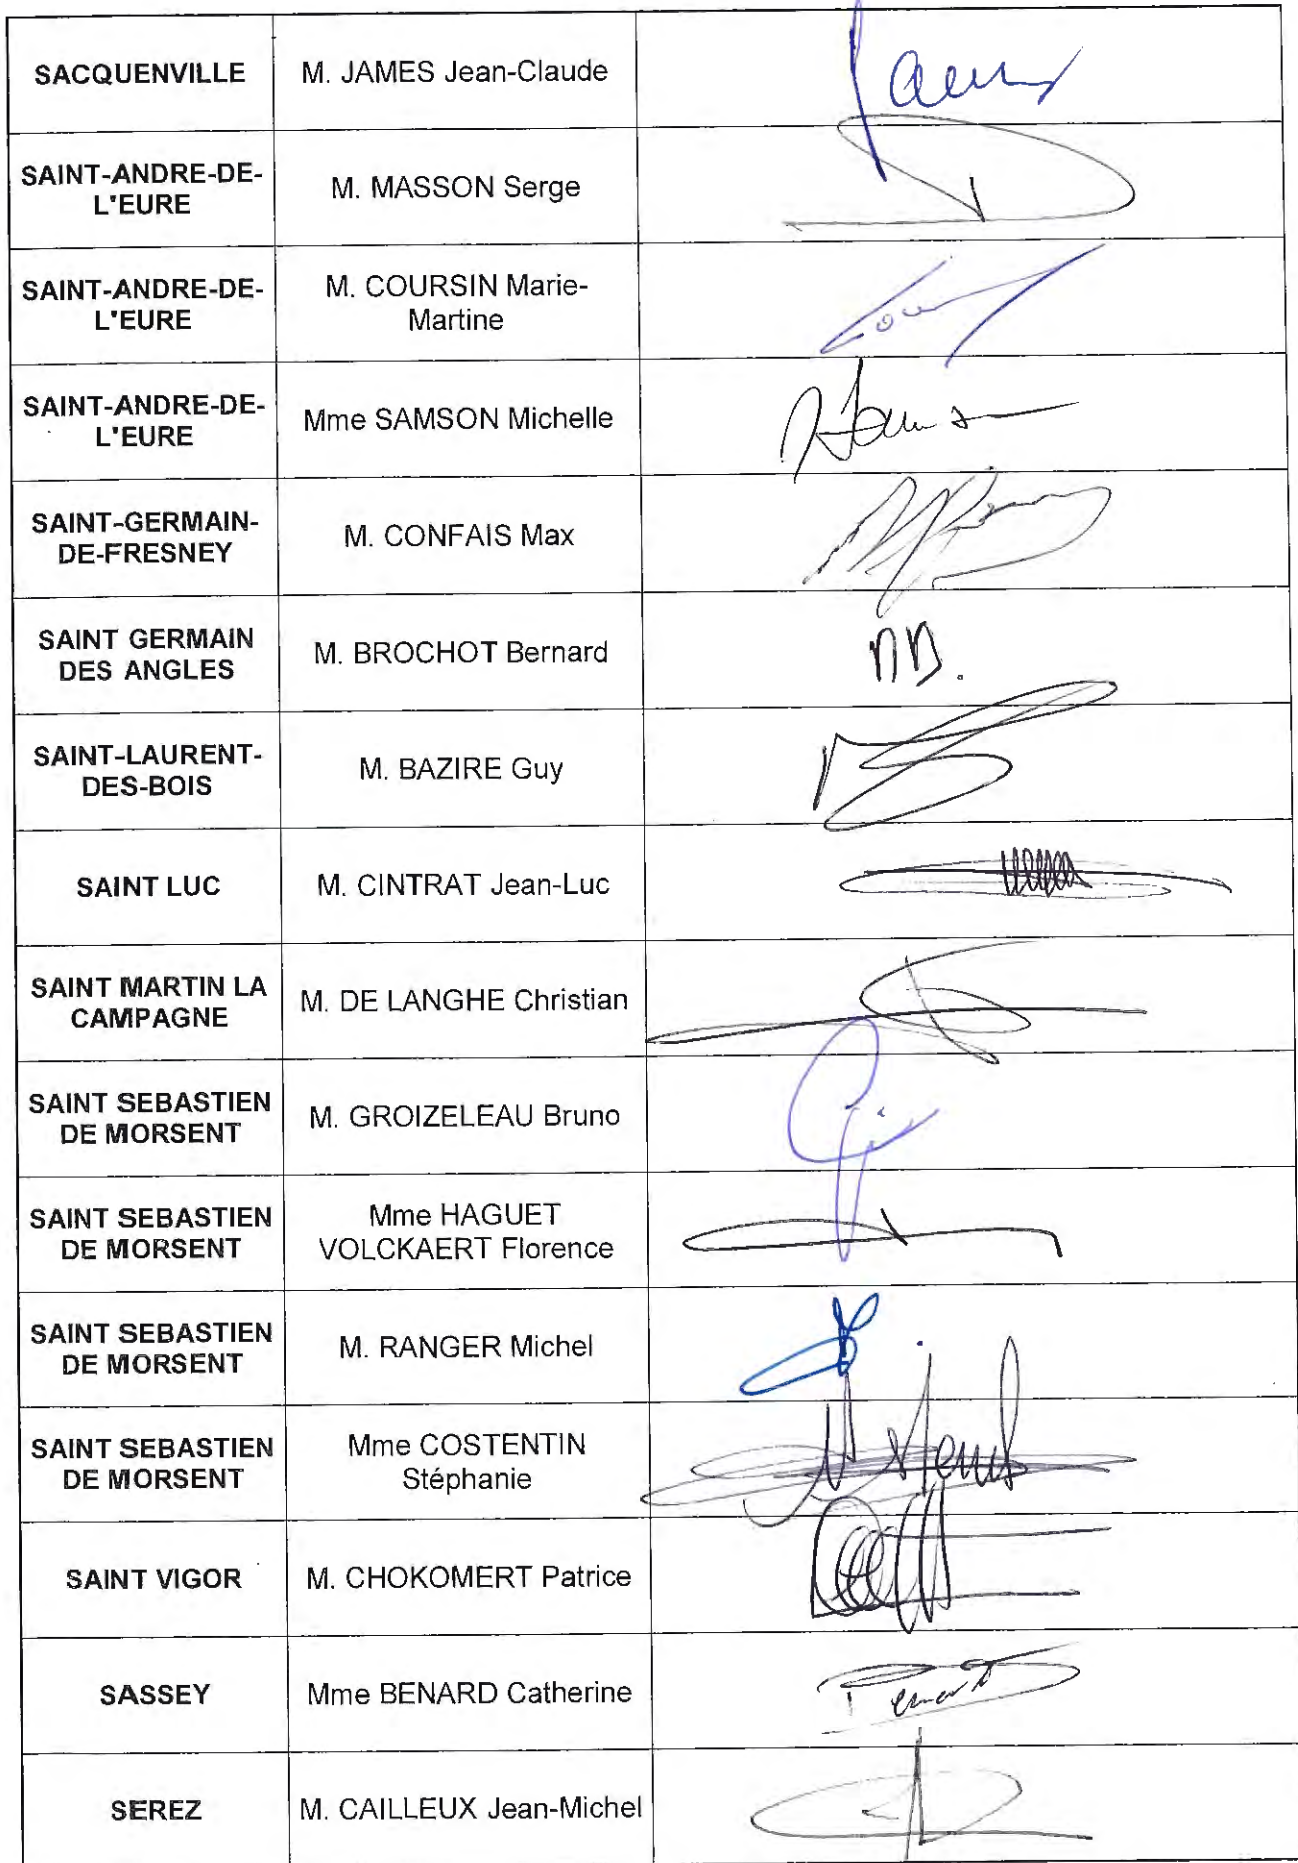 SACQUENVILLE
M. JAMES Jean-Claude
SAINT-ANDRE-DE-
L'EURE
M. MASSON Serge
SAINT-ANDRE-DE-
L'EURE
M. COURSIN Marie-
Martine
SAINT-ANDRE-DE-
L'EURE
Mme SAMSON Michelle
SAINT-GERMAIN-
DE-FRESNEY
M. CONFAIS Max
SAINT GERMAIN
DES ANGLES
M. BROCHOT Bernard
SAINT-LAURENT-
DES-BOIS
M. BAZIRE Guy
SAINT LUC
M. CINTRAT Jean-Luc
SAINT MARTIN LA
CAMPAGNE
M. DE LANGHE Christian
SAINT SEBASTIEN
DE MORSENT
M. GROIZELEAU Bruno
SAINT SEBASTIEN
DE MORSENT
Mme HAGUET
VOLCKAERT Florence
SAINT SEBASTIEN
DE MORSENT
M. RANGER Michel
SAINT SEBASTIEN
DE MORSENT
Mme COSTENTIN
Stéphanie
SAINT VIGOR
M. CHOKOMERT Patrice
SASSEY
Mme BENARD Catherine
SEREZ
M. CAILLEUX Jean-Michel